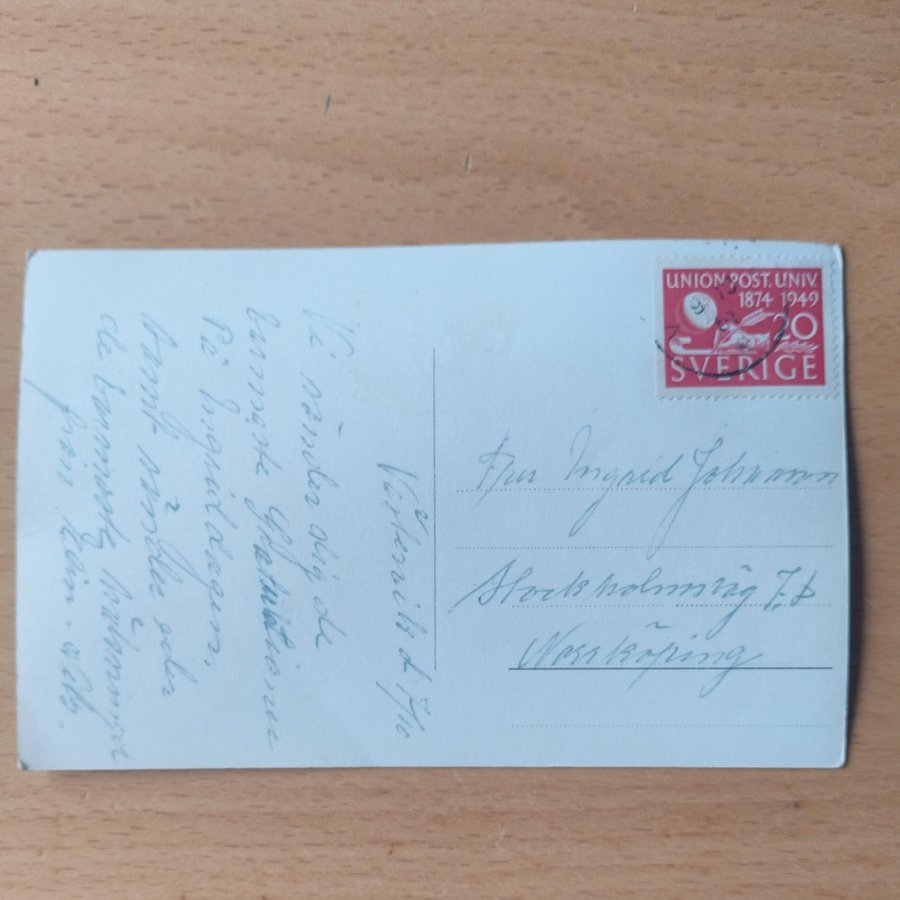 UNION POST. UNIV.
1874 1949
20
SVERIGE
Fru Ingrid Johansson
Stockholmsväg 78
Norrköping
d 7/10
Vi sänder dig de
varmaste Gratulationer
På Ingriddagen,
samt sänder eder
de varmaste hälsningar
från